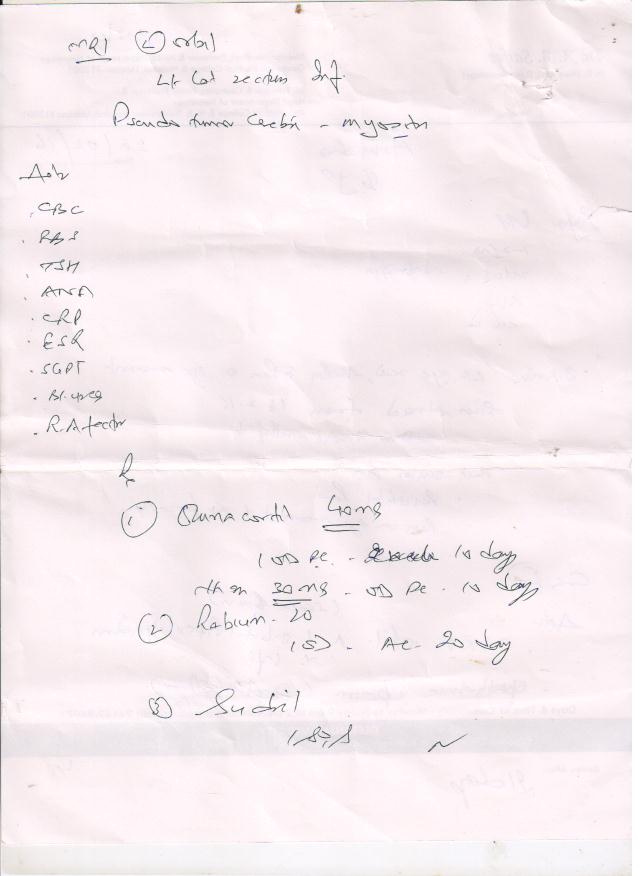 MRI (L) orbit
Lt Lat rectus Inf.
Pseudo tumor - myositis
Adv
. CBC
. RBS
. TSH
. ANA
. CRP
. ESR
. SGPT
. Bl. urea
. R.A factor
Rx
(1) 40mg
1 OD PC - 10 day
then 30mg - OD PC - 10 day
(2) Rabium - 20
1 OD - AC - 20 day
(3)